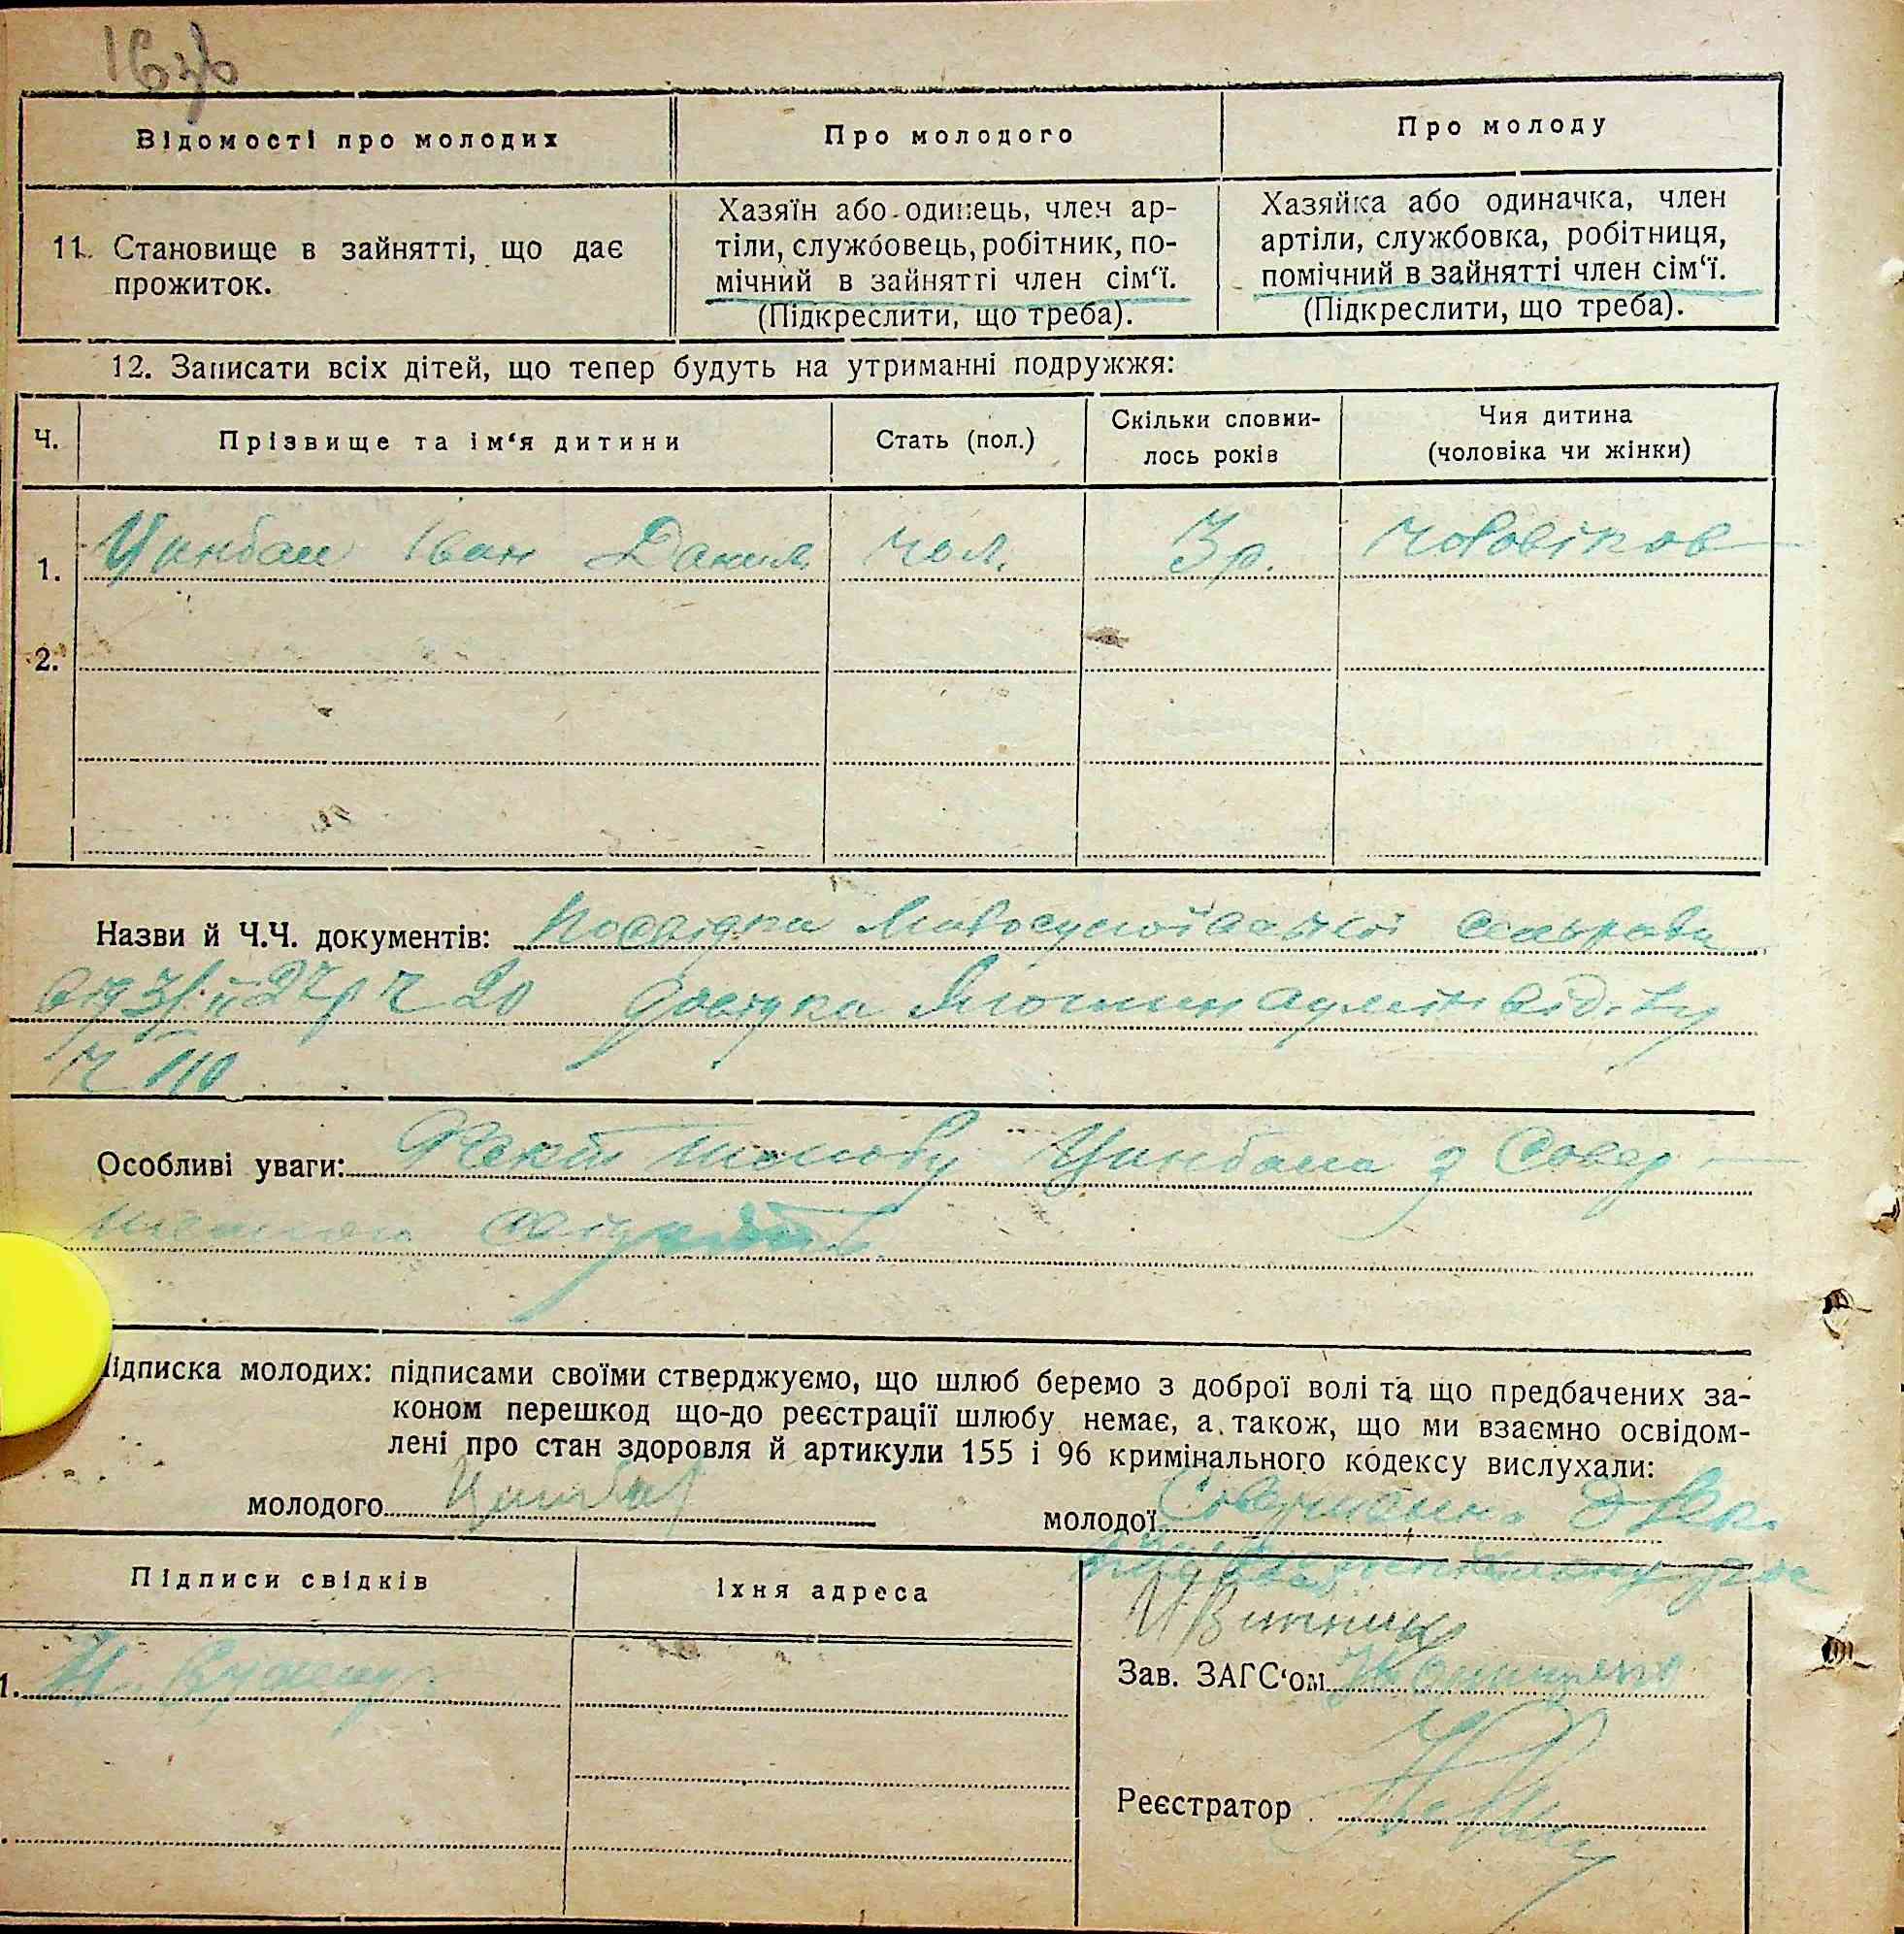 163б
Відомості про молодих
Про молодого
Про молоду
11. Становище в зайнятті, що дає
прожиток.
Хазяїн або одинець, член ар-
тіли, службовець, робітник, по-
мічний в зайнятті член сім‘ї.
(Підкреслити, що треба).
Хазяйка або одиначка, член
артіли, службовка, робітниця,
помічний в зайнятті член сім‘ї.
(Підкреслити, що треба).
12. Записати всіх дітей, що тепер будуть на утриманні подружжя:
Ч.
Прізвище та ім‘я дитини
Стать (пол.)
Скільки сповни-
лось років
Чия дитина
(чоловіка чи жінки)
1. Цимбал Іван Данил. чол. 3 р. чоловіков
2.
Назви й Ч.Ч. документів: Посвідка сільради
від 27р ч 20 довідка адмін відділу
ч 110
Особливі уваги: Акт шлюбу Цимбала з Совер-
Підписка молодих: підписами своїми стверджуємо, що шлюб беремо з доброї волі та що предбачених за-
коном перешкод що-до реєстрації шлюбу немає, а також, що ми взаємно освідом-
лені про стан здоровля й артикули 155 і 96 кримінального кодексу вислухали:
молодого Цимбал
молодої
Підписи свідків
Їхня адреса
1.
Зав. ЗАГС‘ом
Реєстратор